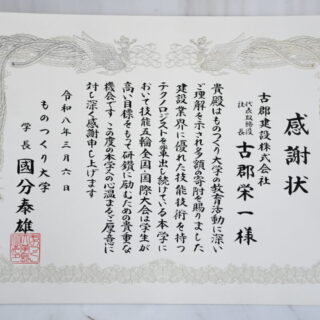 感謝状
古郡建設株式会社
代表取締役社長 古郡栄一様
貴殿はものつくり大学の教育活動に深い
ご理解を示され多額の寄附を賜りました
建設業界に優れた技能技術を持つ
テクノロジストを輩出し続けている本学に
おいて技能五輪全国・国際大会は学生が
高い目標をもって研鑽に励むための貴重な
機会です この度の本学への心温まるご厚意に
対し深く感謝申し上げます
令和八年三月六日
ものつくり大学
学長 國分泰雄